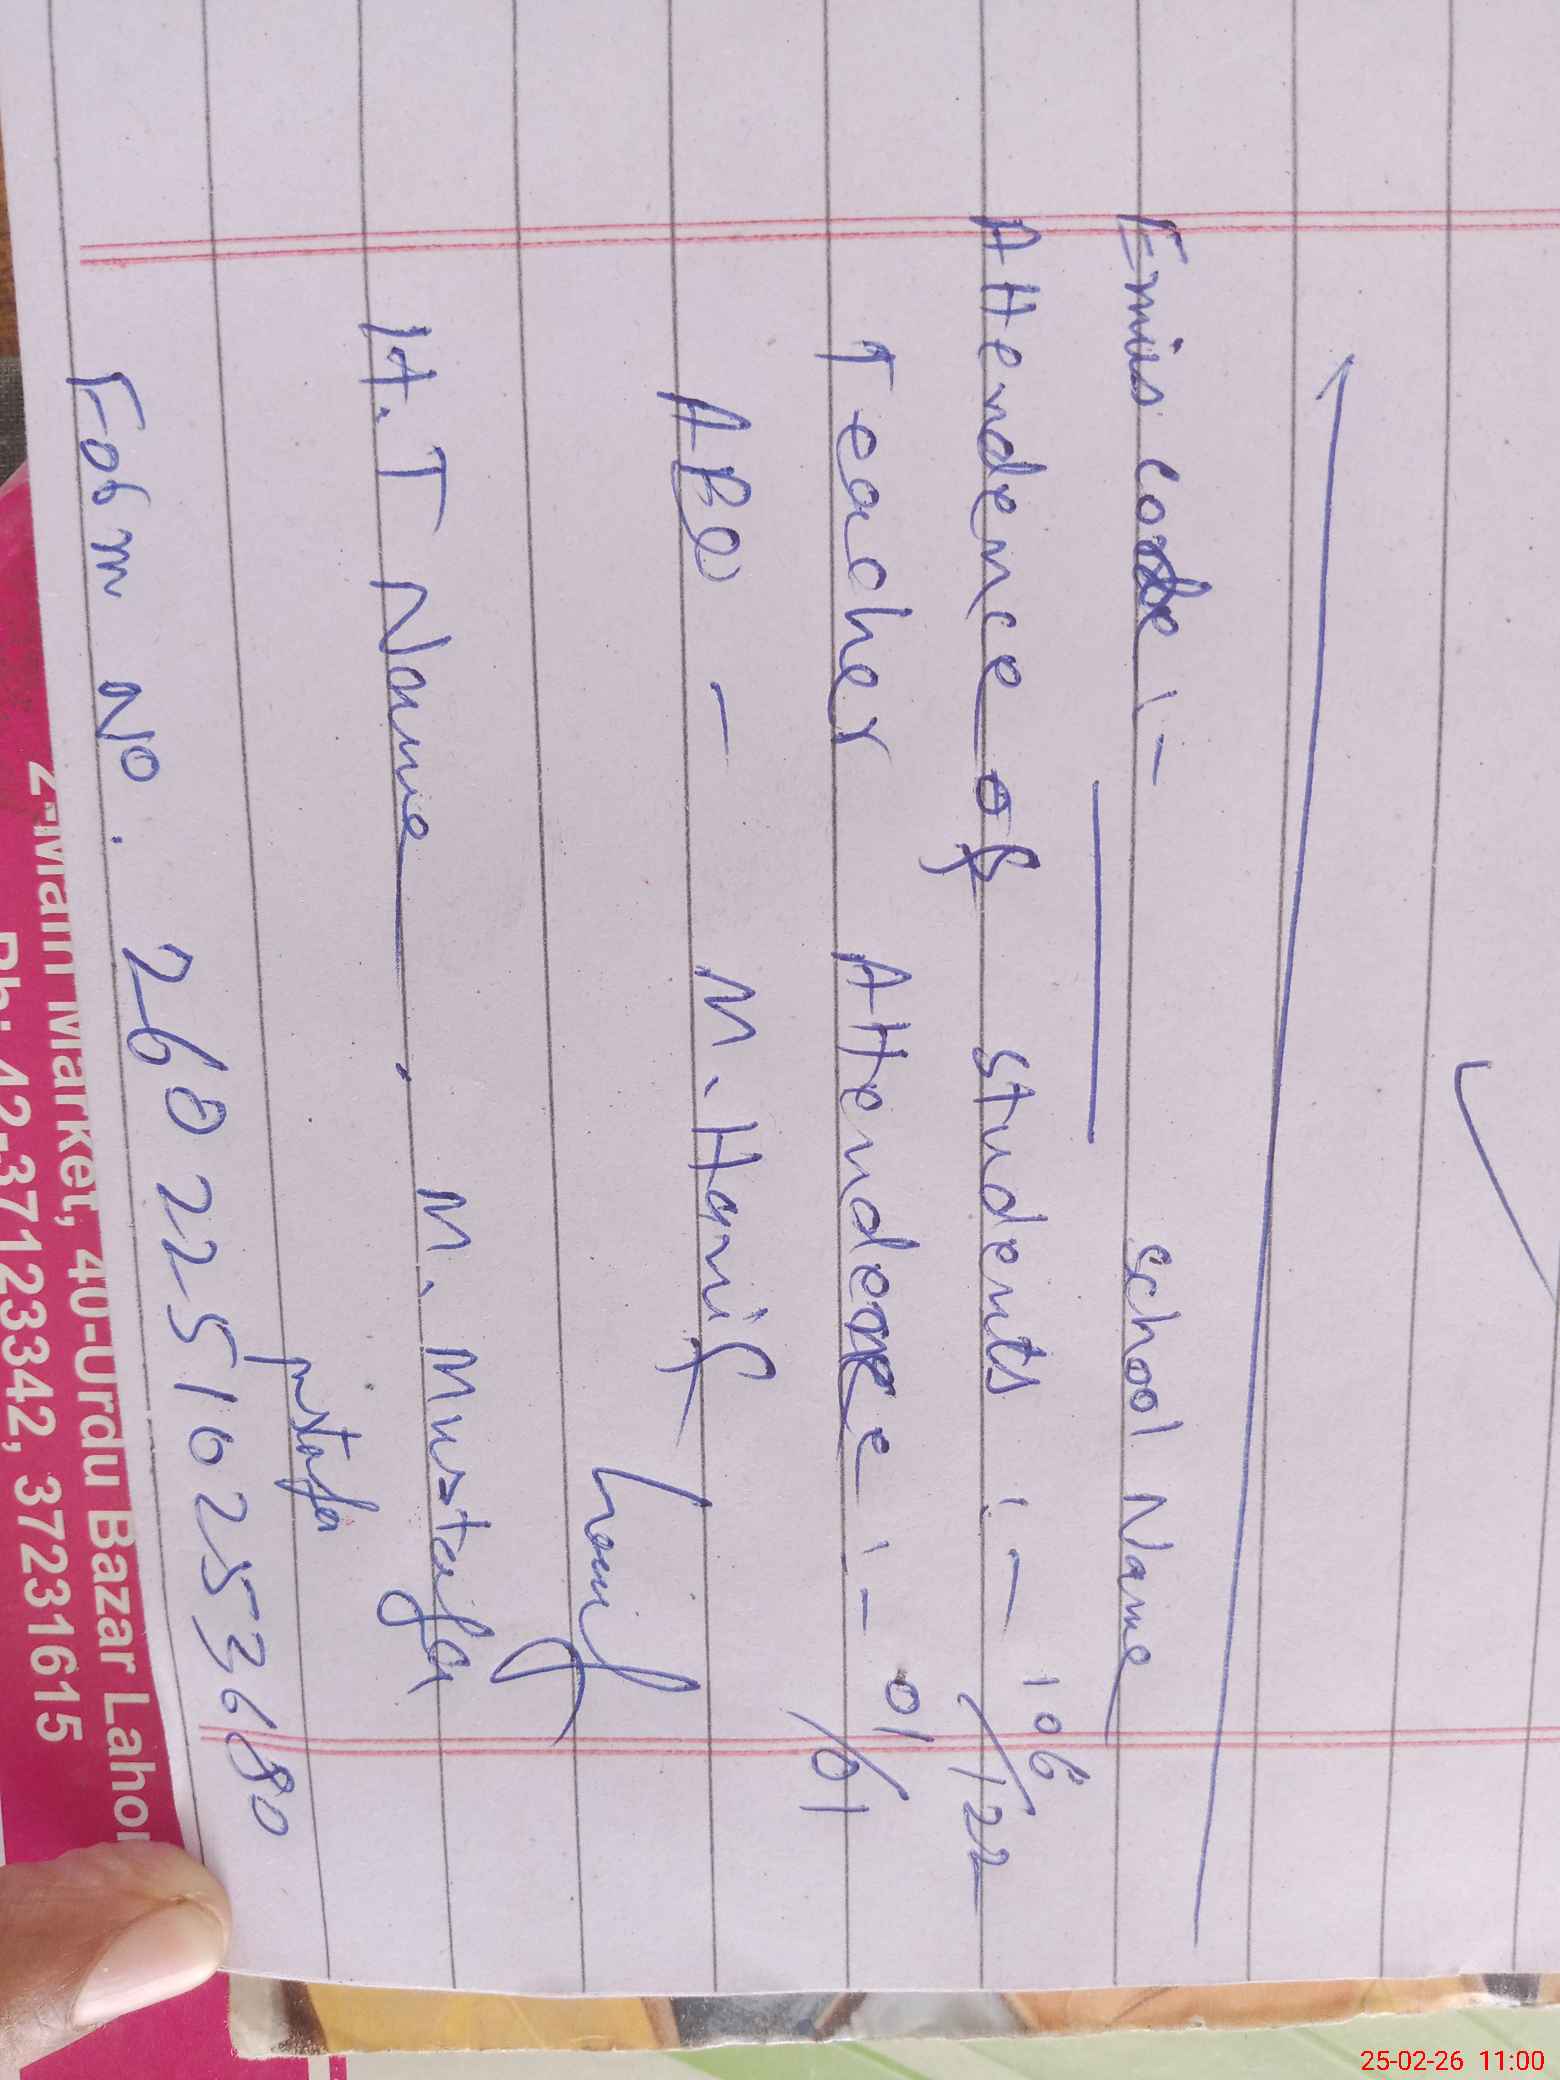 Emis code :- school Name
Attendence of students :- 106/122
Teacher Attendence :- 01/01
ABO - M. Hanif
hanif
H.T Name . M. Mustafa
Form No. 26022510253680
2-Main Market, 40-Urdu Bazar Lahor
Ph: 42-37123342, 37231615
25-02-26 11:00